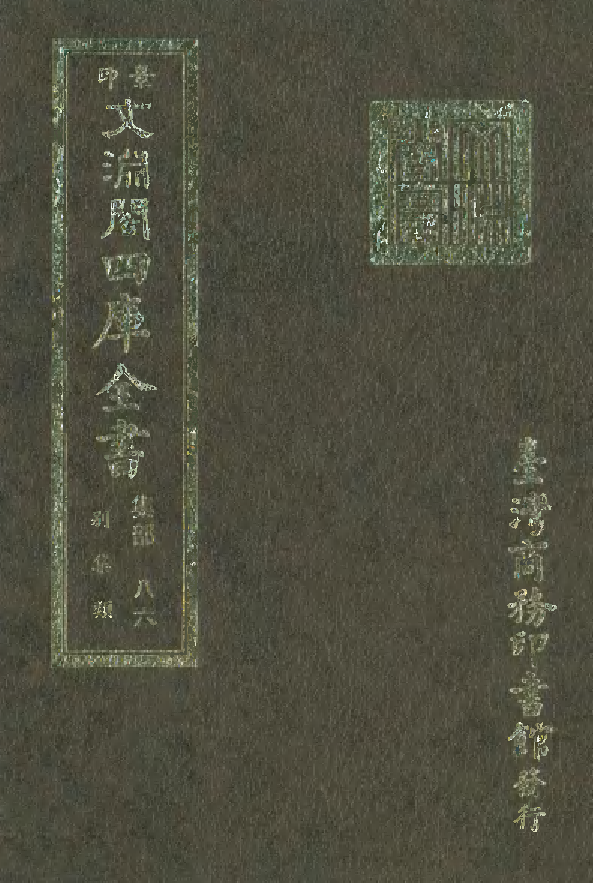 景印
文淵閣四庫全書
集部 八六
別集類
臺灣商務印書館發行